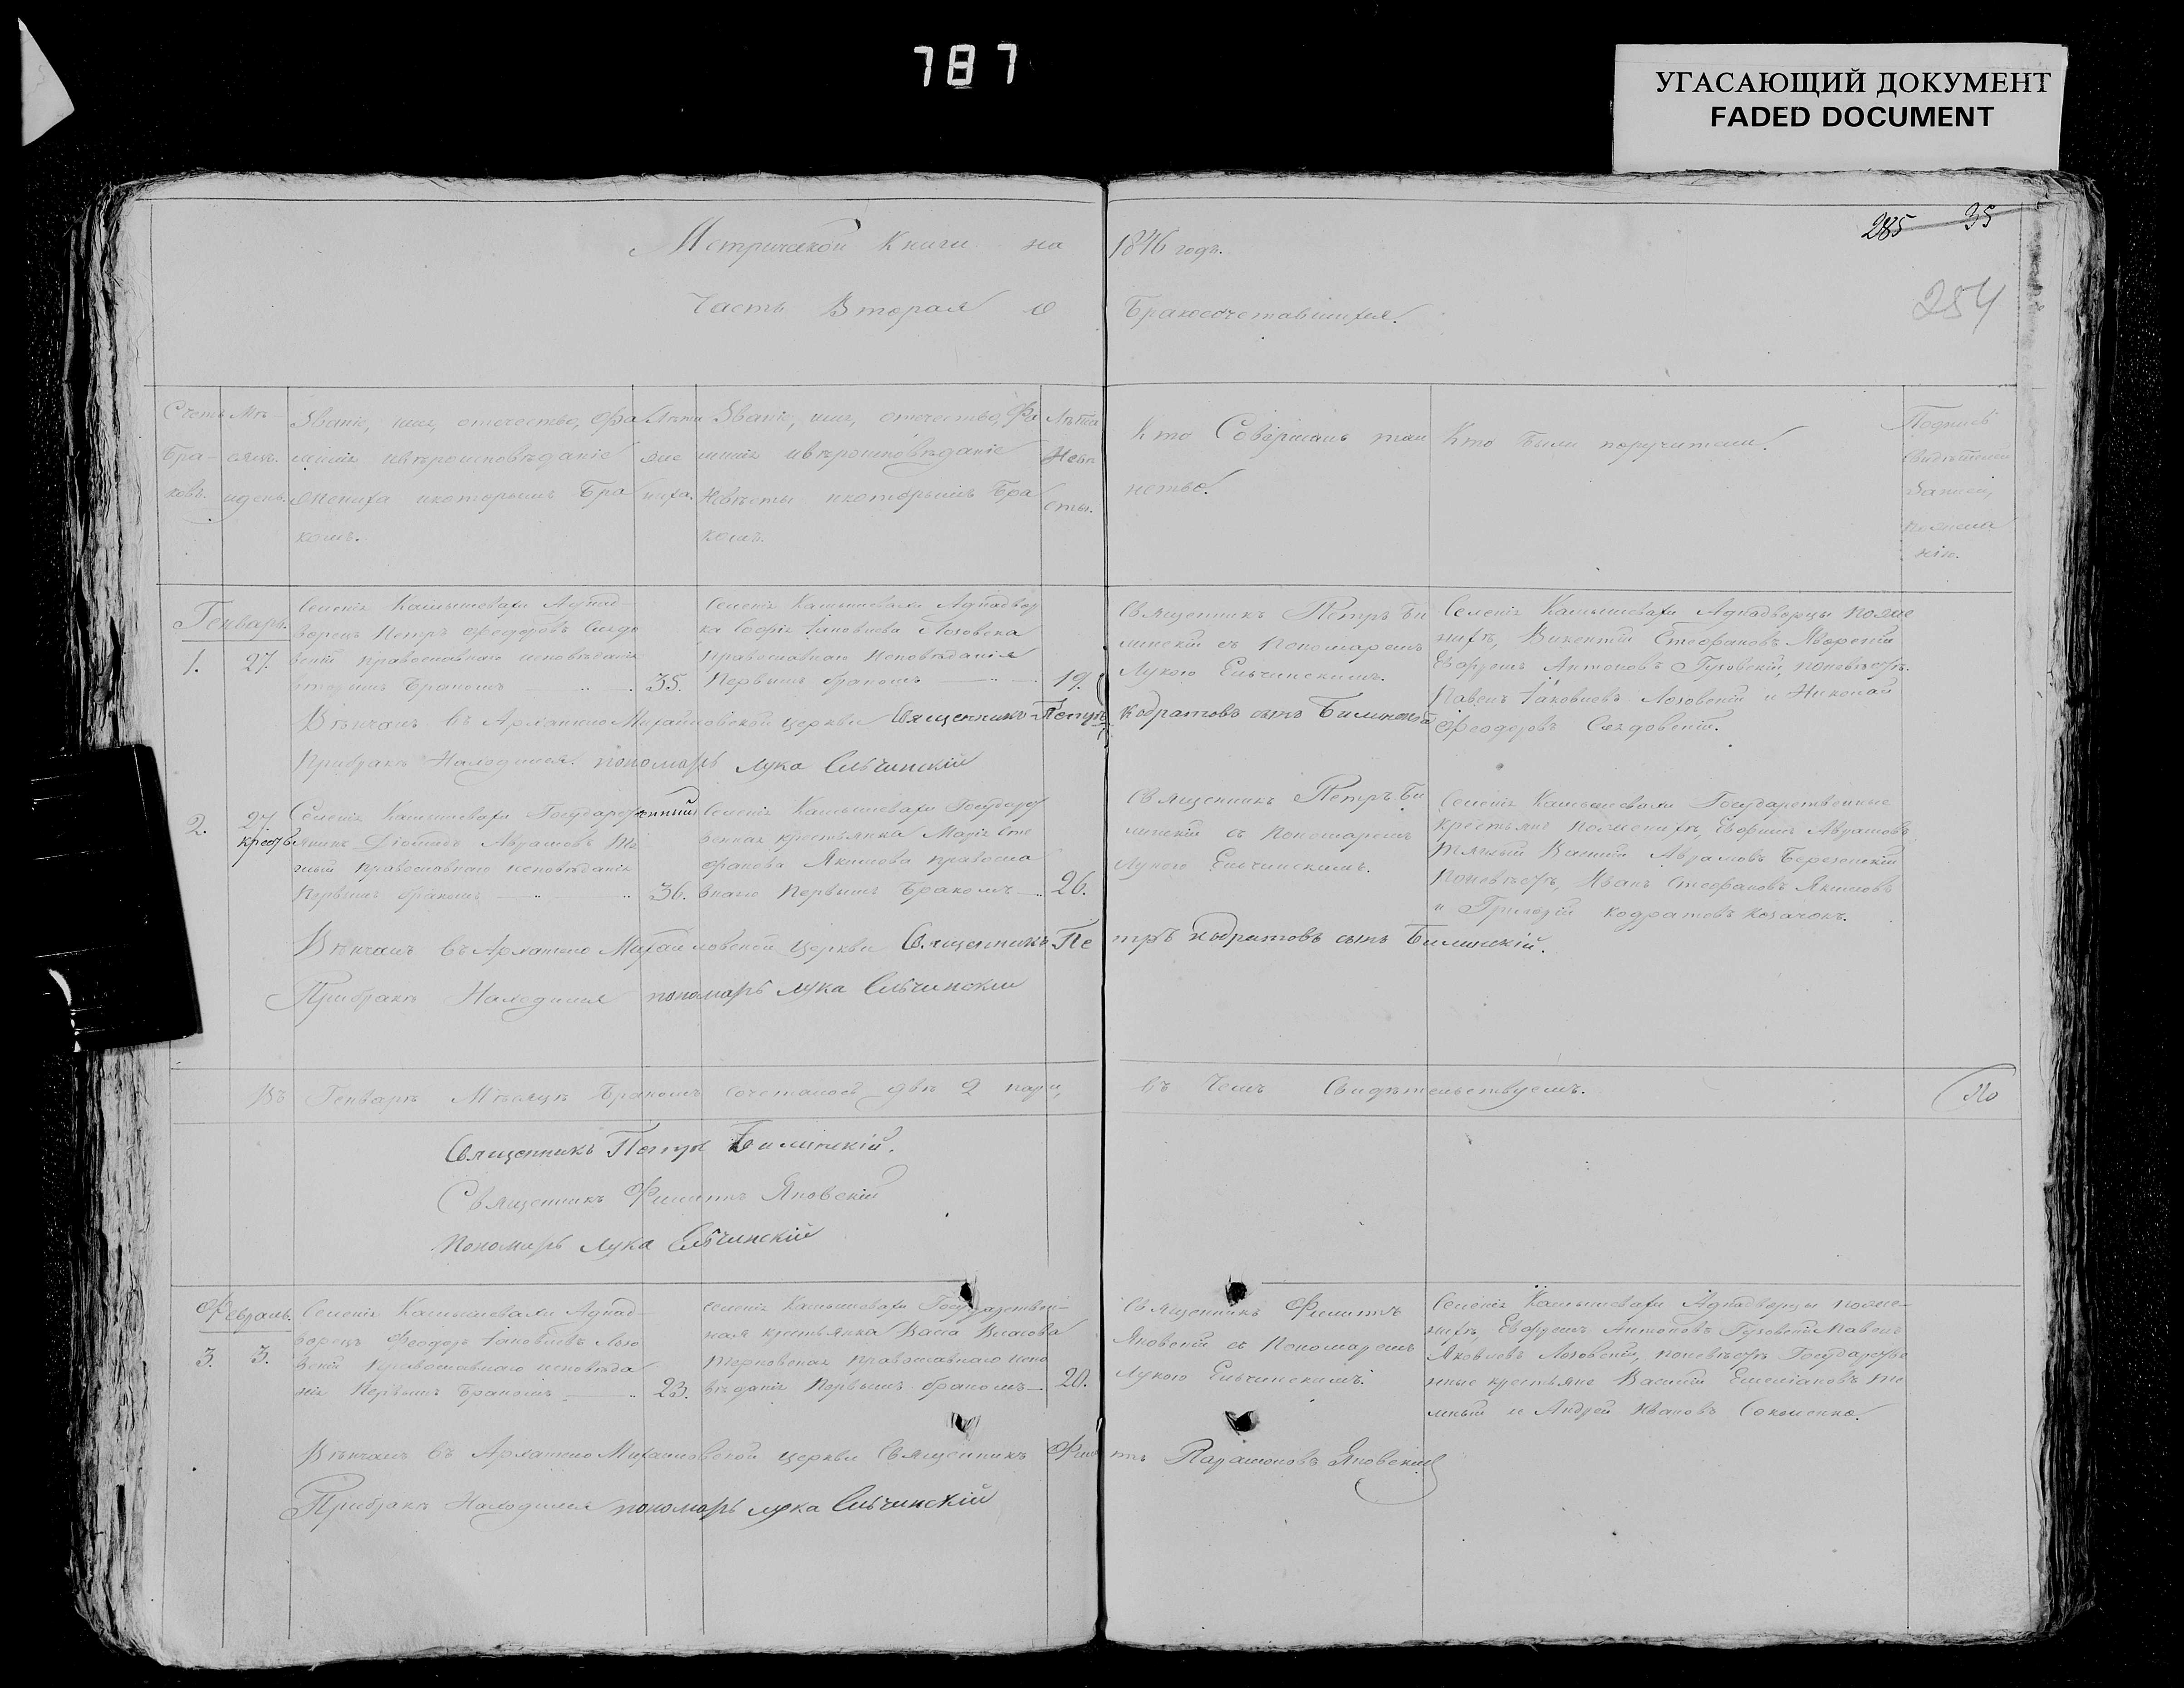 787
УГАСАЮЩИЙ ДОКУМЕНТ
FADED DOCUMENT
285 35
254
Метрической Книги на 1846 годъ.
Часть Вторая о Бракосочетавшихся.
Счетъ
Бра-
ковъ.
Мѣ-
сяцъ
и день.
Званіе, имя, отечество, Фа
милія и вѣроисповѣданіе
Жениха и которымъ Бра
комъ.
Лѣта
Же
ниха.
Званіе, имя, отечество, Фа
милія и вѣроисповѣданіе
Невѣсты и которымъ Бра
комъ.
Лѣта
Невѣ
сты.
Кто Совершалъ таи
нство.
Кто были поручители.
Подписъ
Свидѣтелей
Записи,
по желa
нію.
Генварь.
1. 27.
Селенія Камышевахи Аднад-
ворецъ Петръ Феодоровъ
вскій православнаго исповѣданія
вторымъ Бракомъ 35.
Селенія Камышевахи Аднадвор
ка Софія Іаковлева Лозовска
православнаго исповѣданія
Первымъ бракомъ 19.
Священникъ Петръ Би
линскій съ Пономаремъ
Лукою Ельчинскимъ.
Селенія Камышевахи Аднадворцы по же
нихѣ, Викентій Стефановъ Яворскій
Антоновъ Гузовскій, по невѣстѣ.
Павелъ Іаковлевъ Лозовскій и Николай
Феодоровъ
Вѣнчалъ въ Архангело Михайловской церкви Священникъ Петръ Кодратовъ сынъ Билинскій
При бракѣ Находился пономарь Лука Ельчинскій
2. 27
Селенія Камышевахи Государственный
крестьянинъ Діомидъ Аврамовъ
православнаго исповѣданія
Первымъ бракомъ 36.
Селенія Камышевахи Государст
венная крестьянка Марія Сте
фанова Якимова правосла
внаго Первымъ Бракомъ 26.
Священникъ Петръ Би
линскій съ Пономаремъ
Лукою Ельчинскимъ.
Селенія Камышевахи Государственные
крестьяне по женихѣ, Ефимъ Аврамовъ
Василій Аврамовъ Березовскій
По невѣстѣ, Иванъ Стефановъ Якимовъ
и Григорій Кодратовъ Козачокъ.
Вѣнчалъ въ Архангело Михайловской церкви Священникъ Петръ Кодратовъ сынъ Билинскій.
При бракѣ Находился пономарь Лука Ельчинскій
Въ Генварѣ Мѣсяцѣ Бракомъ сочеталось двѣ 2 пары, въ Чемъ Свидѣтельствуемъ. По
Священникъ Петръ Билинскій.
Священникъ Филиппъ Яновскій
Пономарь Лука Ельчинскій
Февраль.
3. 3.
Селенія Камышевахи Аднад-
ворецъ Феодоръ Іаковлевъ Лозо
вскій Православнаго исповѣда
нія Первымъ Бракомъ 23.
Селенія Камышевахи Государствен-
ная крестьянка Васса Власова
Терновская православнаго испо
вѣданія Первымъ бракомъ 20.
Священникъ Филиппъ
Яновскій съ Пономаремъ
Лукою Ельчинскимъ.
Селенія Камышевахи Аднадворцы по же-
нихѣ, Антоновъ Гузовскій Павелъ
Яковлевъ Лозовскій, по невѣстѣ Государстве
нные крестьяне Василій Емеліановъ Те
мный и Андрей Ивановъ Соколенко.
Вѣнчалъ въ Архангело Михайловской церкви Священникъ Филиппъ Парамоновъ Яновскій
При бракѣ Находился пономарь Лука Ельчинскій